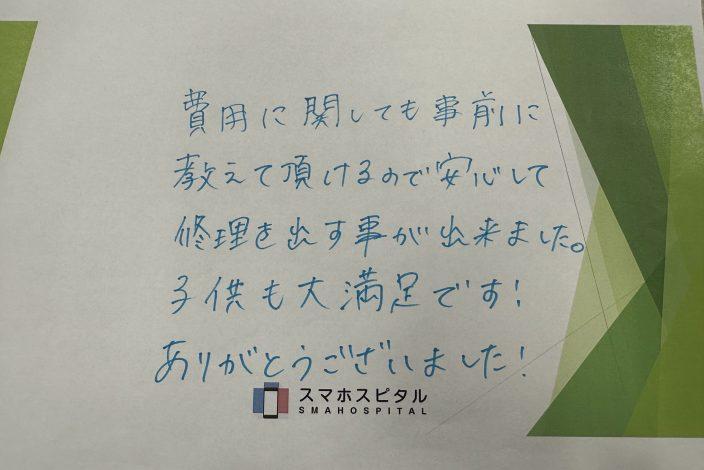 費用に関しても事前に
教えて頂けるので安心して
修理を出す事が出来ました。
子供も大満足です!
ありがとうございました!
スマホスピタル
SMAHOSPITAL